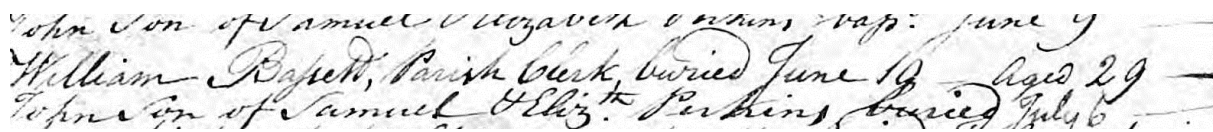 John Son of Samuel & Elizabeth Perkins bapt. June 9
William Bassett, Parish Clerk, buried June 19 — Aged 29 —
John Son of Samuel & Eliz.th Perkins buried July 6 —